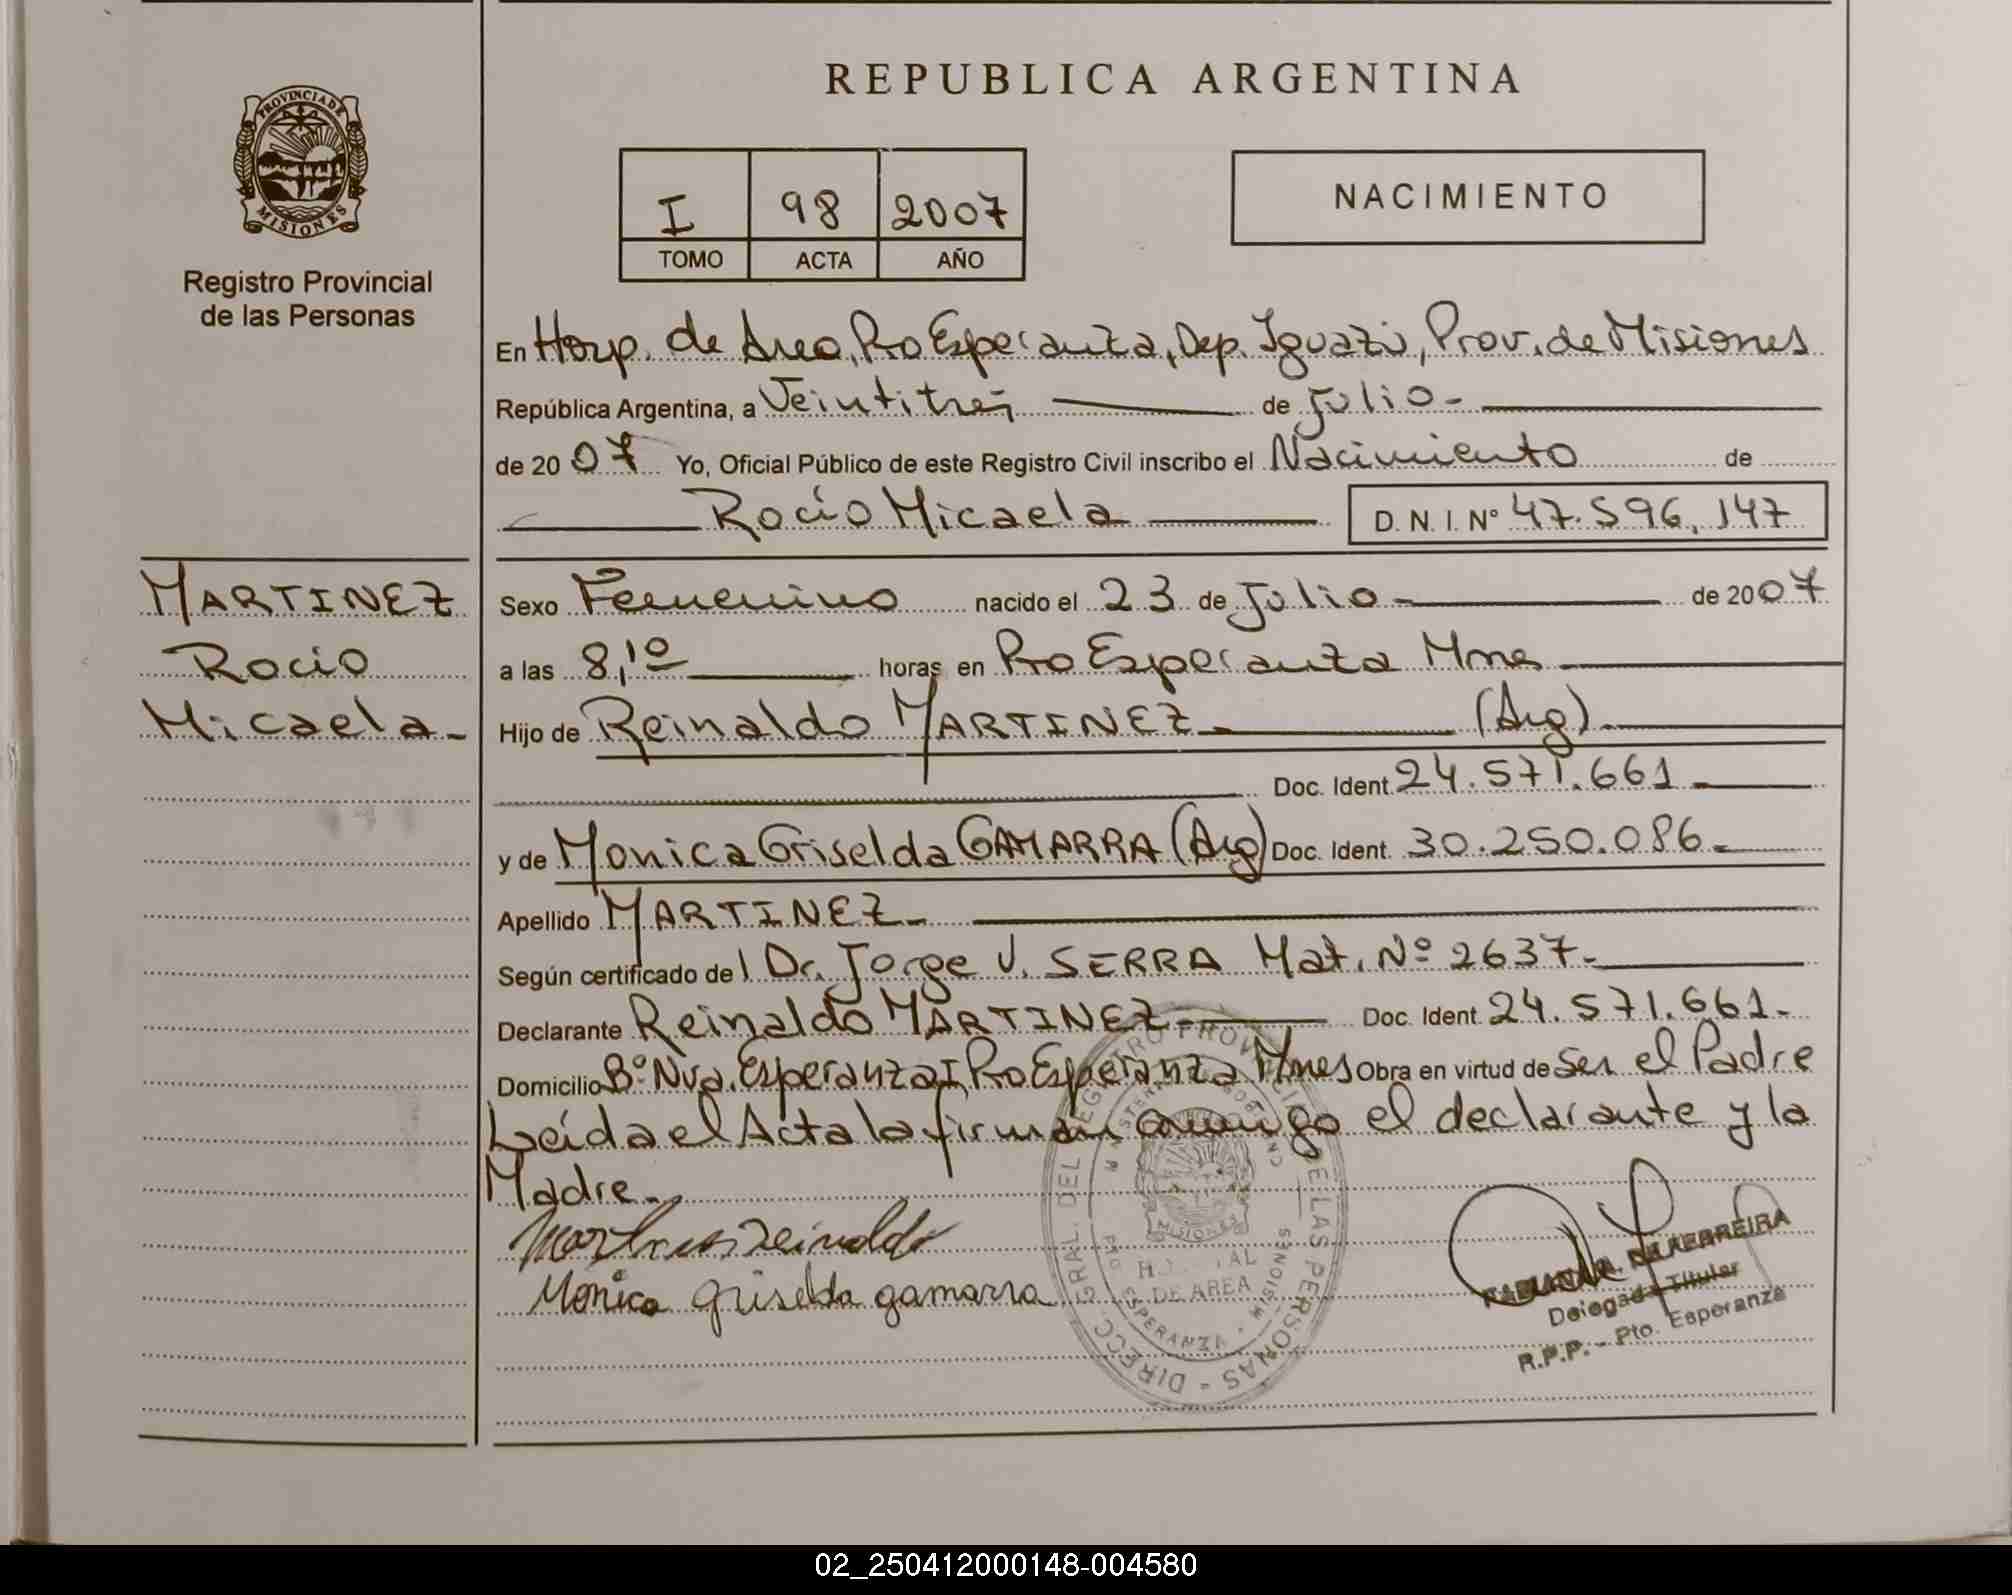 REPUBLICA ARGENTINA
PROVINCIA DE
MISIONES
Registro Provincial
de las Personas
I 98 2007
TOMO ACTA AÑO
NACIMIENTO
En Hosp. de Area, Pto Esperanza, Dep. Iguazú, Prov. de Misiones
República Argentina, a Veintitrés de Julio-
de 2007 Yo, Oficial Público de este Registro Civil inscribo el Nacimiento de
Rocío Micaela D. N. I. Nº 47.596.147
MARTINEZ
Rocio
Micaela-
Sexo Femenino nacido el 23 de Julio- de 2007
a las 8,10 horas en Pto Esperanza Mnes
Hijo de Reinaldo MARTINEZ- (Arg).
Doc. Ident. 24.571.661-
y de Monica Griselda GAMARRA (Arg) Doc. Ident. 30.250.086.-
Apellido MARTINEZ-
Según certificado del Dr. Jorge V. SERRA Mat. Nº 2637-
Declarante Reinaldo MARTINEZ- Doc. Ident. 24.571.661-
Domicilio Bº Nva. Esperanza I, Pto Esperanza Mnes Obra en virtud de Ser el Padre
Leída el Acta la firman conmigo el declarante y la
Madre-
Martinez Reinaldo
Monica Griselda gamarra
DIRECC. GRAL. DEL REGISTRO PROVINCIAL DE LAS PERSONAS
MISIONES
DE AREA
ESPERANZA - MISIONES
DE FERREIRA
Delegada Titular
R.P.P. - Pto. Esperanza
02_250412000148-004580